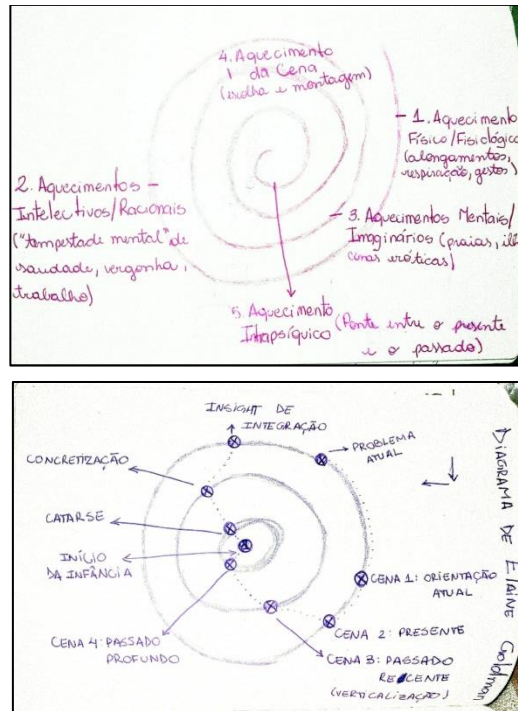 4. Aquecimento
da Cena
(escolha e montagem)
1. Aquecimento
Físico/Fisiológico
(alongamentos,
respiração, gestos)
2. Aquecimentos
Intelectivos/Racionais
("tempestade mental" de
saudade, vergonha,
trabalho)
3. Aquecimentos Mentais/
Imaginários (praias,
cenas eróticas)
5. Aquecimento
Intrapsíquico (Ponte entre o presente
e o passado)
INSIGHT DE
INTEGRAÇÃO
PROBLEMA
ATUAL
CONCRETIZAÇÃO
CATARSE
INÍCIO
DA INFÂNCIA
CENA 1: ORIENTAÇÃO
ATUAL
CENA 2: PRESENTE
CENA 3: PASSADO
RECENTE
(VERTICALIZAÇÃO)
CENA 4: PASSADO
PROFUNDO
DIAGRAMA DE ELAINE Goldman